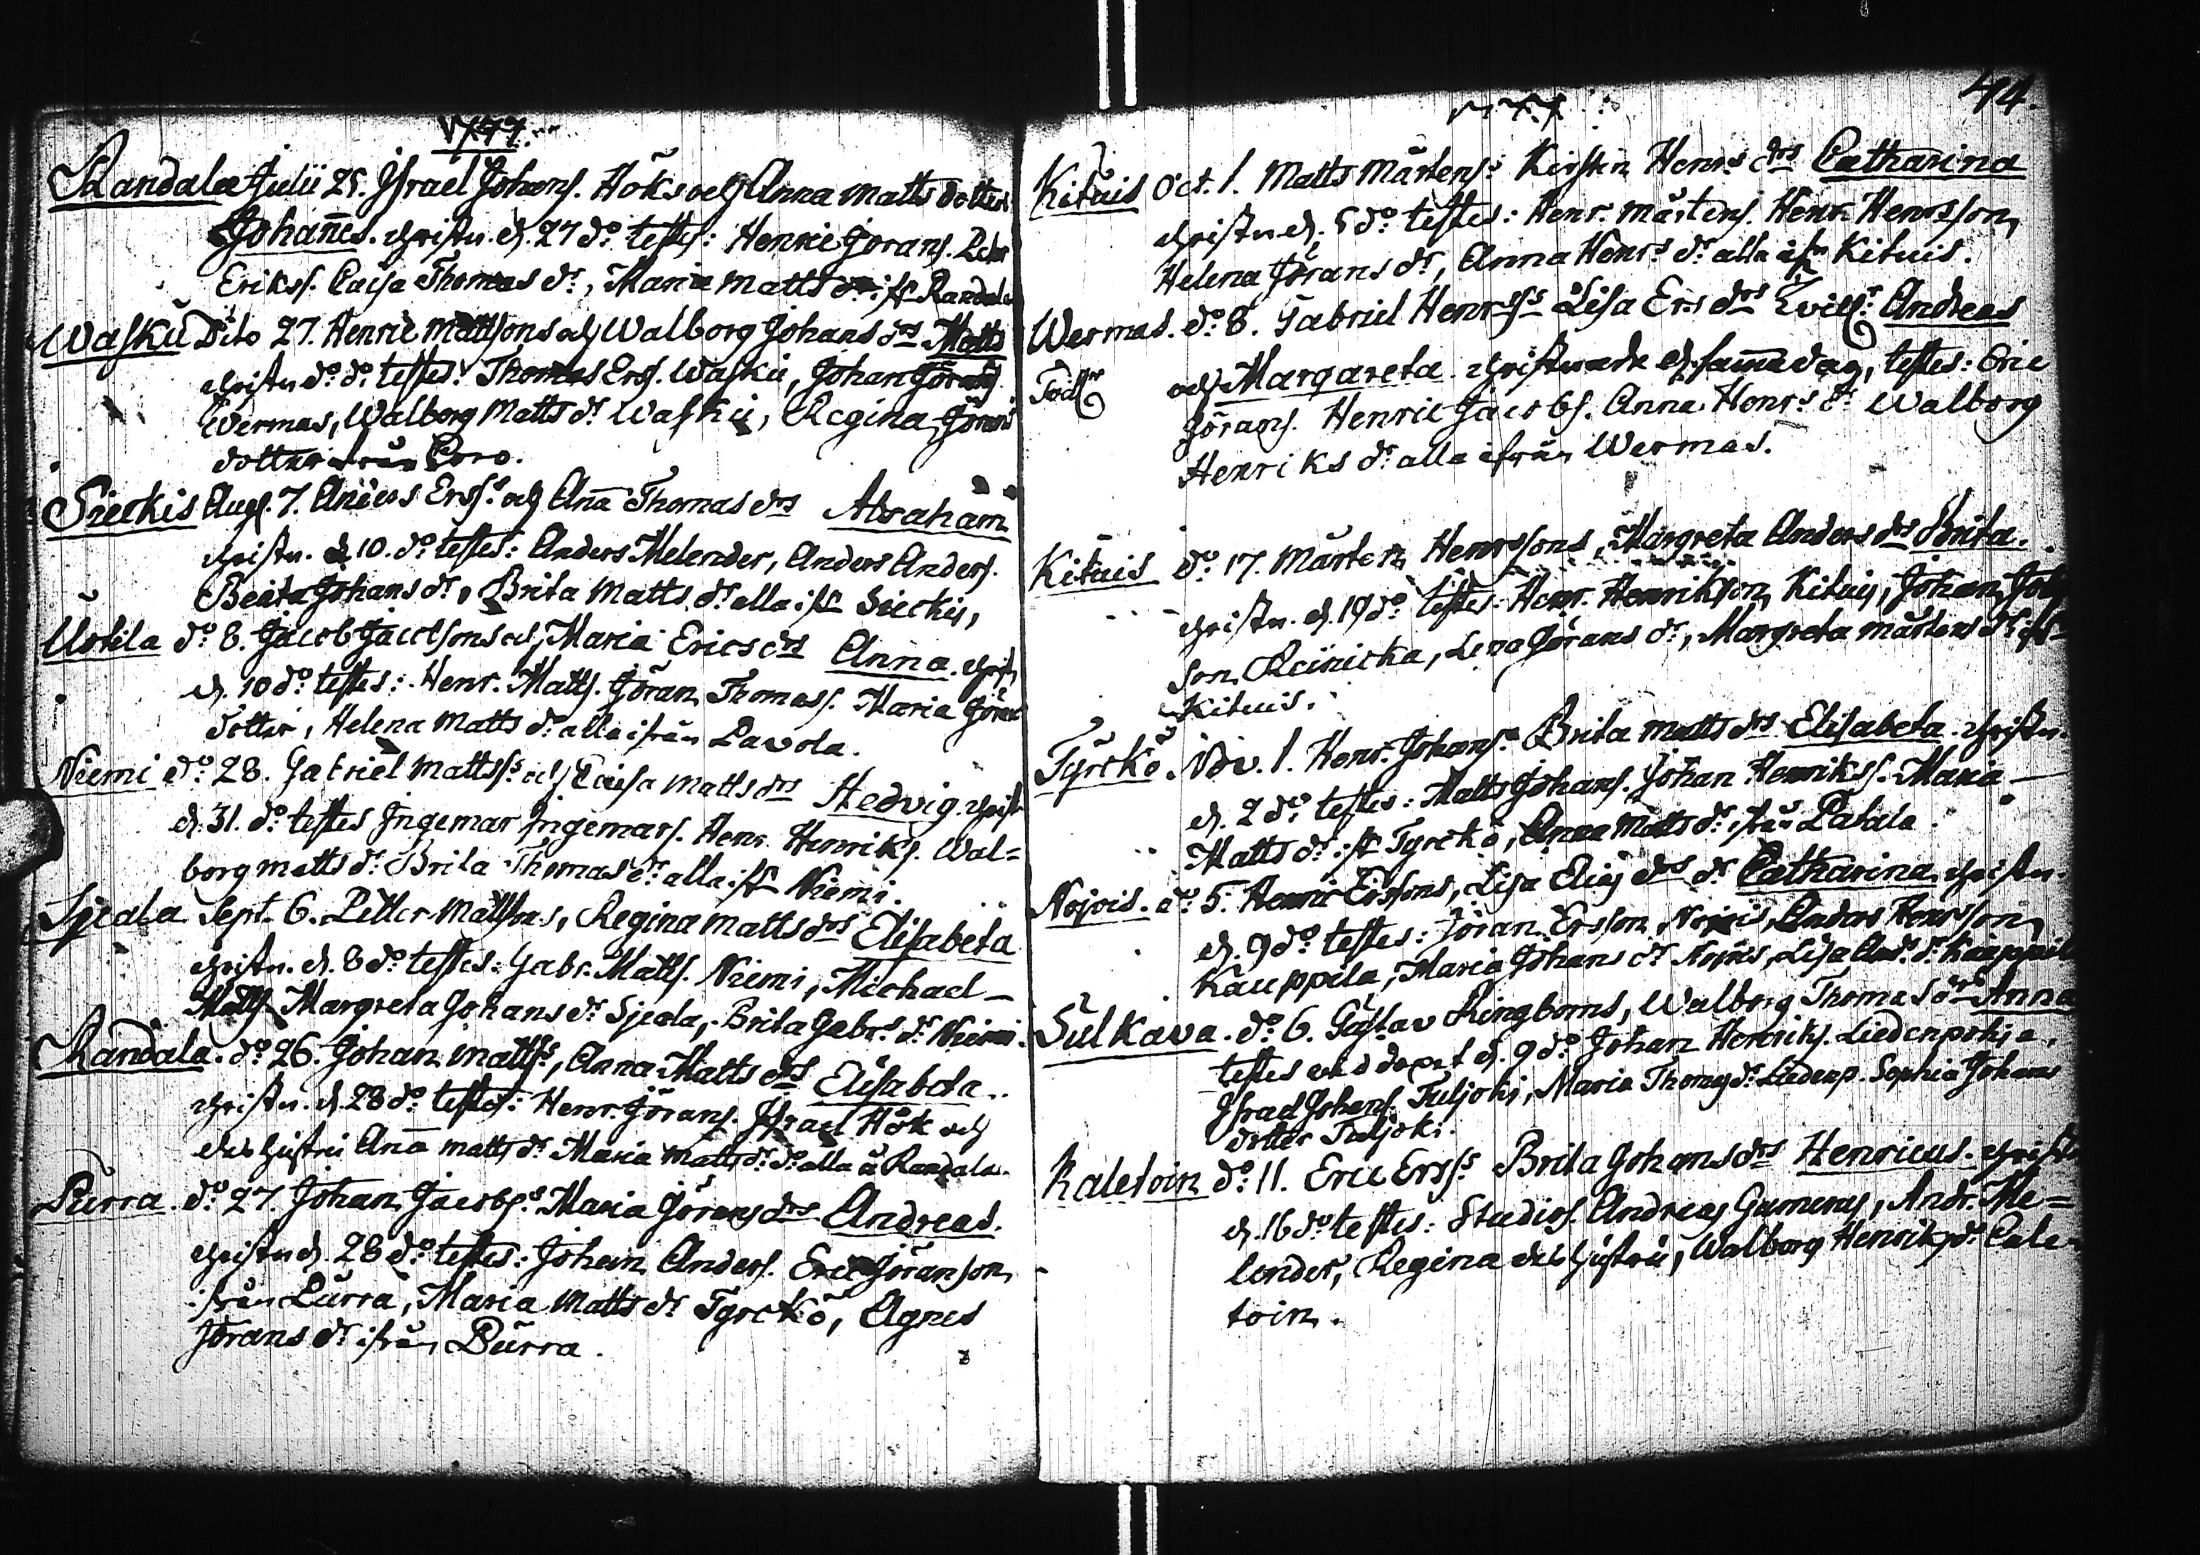 1777.
Randala Julii 25. Israel Johans. Höks och Anna Matts dotters
Johañes. christn. d. 27 do testes: Henric Jörans. Petter
Erikss. Caisa Thomas dr, Maria Matts dr ifr. Randala
Wasku Dito 27. Henric Mattssons och Walborg Johans drs Matts
christn do do testes: Thomas Ers. Wasku, Johan Jörans
Wermas, Walborg Matts dr Wasku, Regina Jörans
dotter från Poro.
Sierkis Aug. 7. Anders Erss. och Aña Thomas drs Abraham
christn. d. 10. do testes: Anders Melender, Anders Anders.
Beata Johans dr, Brita Matts dr alla ifr Sierkis,
Uotila do 8. Jacob Jacobsons och Maria Erics drs Anna christn
d. 10 do testes: Henr. Matts. Jöran Thomass. Maria Jörans
dotter, Helena Matts dr alla ifrån Pavola.
Niemi do 28. Gabriel Mattss och Caisa Matts drs Hedvig christn
d. 31. do testes Ingemar Ingemars. Henr. Henriks. Wal=
borg Matts dr Brita Thomas dr alla ifr Niemi.
Sjeala Sept. 6. Petter Mattsons, Regina Matts drs Elisabeta
christn. d. 8 do testes: Gabr. Matts. Niemi, Michael
Matts. Margreta Johans dr Sjeala, Brita Gabrs dr Niemi.
Randala. do 26. Johan Mattss, Anna Matts drs Elisabeta.
christn. d. 28 do testes: Henr. Jörans. Israel Hök och
des hustru Aña Matts dr Maria Matts dr do alla å Randala.
Purra. do 27. Johan Jacobs. Maria Jörans drs Andreas.
christn d. 28 do testes: Johan Anders. Eric Jöranson
ifrån Purra, Maria Matts dr Tyrckö, Agnes
Jörans dr ifrån Purra.
1777
44.
Kituis Oct. 1. Matts Mårtens. Kirstin Henrs drs Catharina
christn d. 5 do testes: Henr. Mårtens. Henr. Henrsson,
Helena Jörans dr, Anna Henrs dr alla ifr Kituis.
Wermas. do 8. Gabriel Henrss Lisa Ers drs Tvill. Andreas
och Margareta christnade d. sama dag, testes: Eric
Jörans. Henric Jacobs. Anna Henrs dr Walborg
Henriks dr alla ifrån Wermas.
Kituis do 17. Mårten Henrssons, Margreta Anders drs Brita.
christn. d. 19 do testes: Henr. Henrikson Kituis, Johan Joh
son Reinicka, Lena Jörans dr, Margreta Mårtens dr ifr
Kituis.
Tyrckö. Nov. 1. Henr. Johans. Brita Matts drs Elisabeta. christn.
d. 2 do testes: Matts Johans. Johan Henrikss. Maria
Matts dr ifr Tyrckö, Anna Matts dr ifrån Patala.
Nojois. do 5. Henric Erssons, Lisa Elias drs dr Catharina christn.
d. 9 do testes: Jöran Ersson Nojois, Anders Henrsson
Kauppila, Maria Johans dr Nojois, Lisa And. dr Kauppila
Sulkava. do 6. Gustav Ringboms, Walborg Thomas drs Anna
testes vid dopet d. 9 do Johan Henriks. Liedenpohja,
Israel Johans. Tuljoki, Maria Thomas dr Liedenp. Sophia Johans
dotter Tuljoki.
Kaletoin do 11. Eric Erss. Brita Johans drs Henricus. christn
d. 16 do testes: Studios. Andreas Gumerus, Andr. Me=
lender, Regina des hustru, Walborg Henriks dr Cale=
toin.